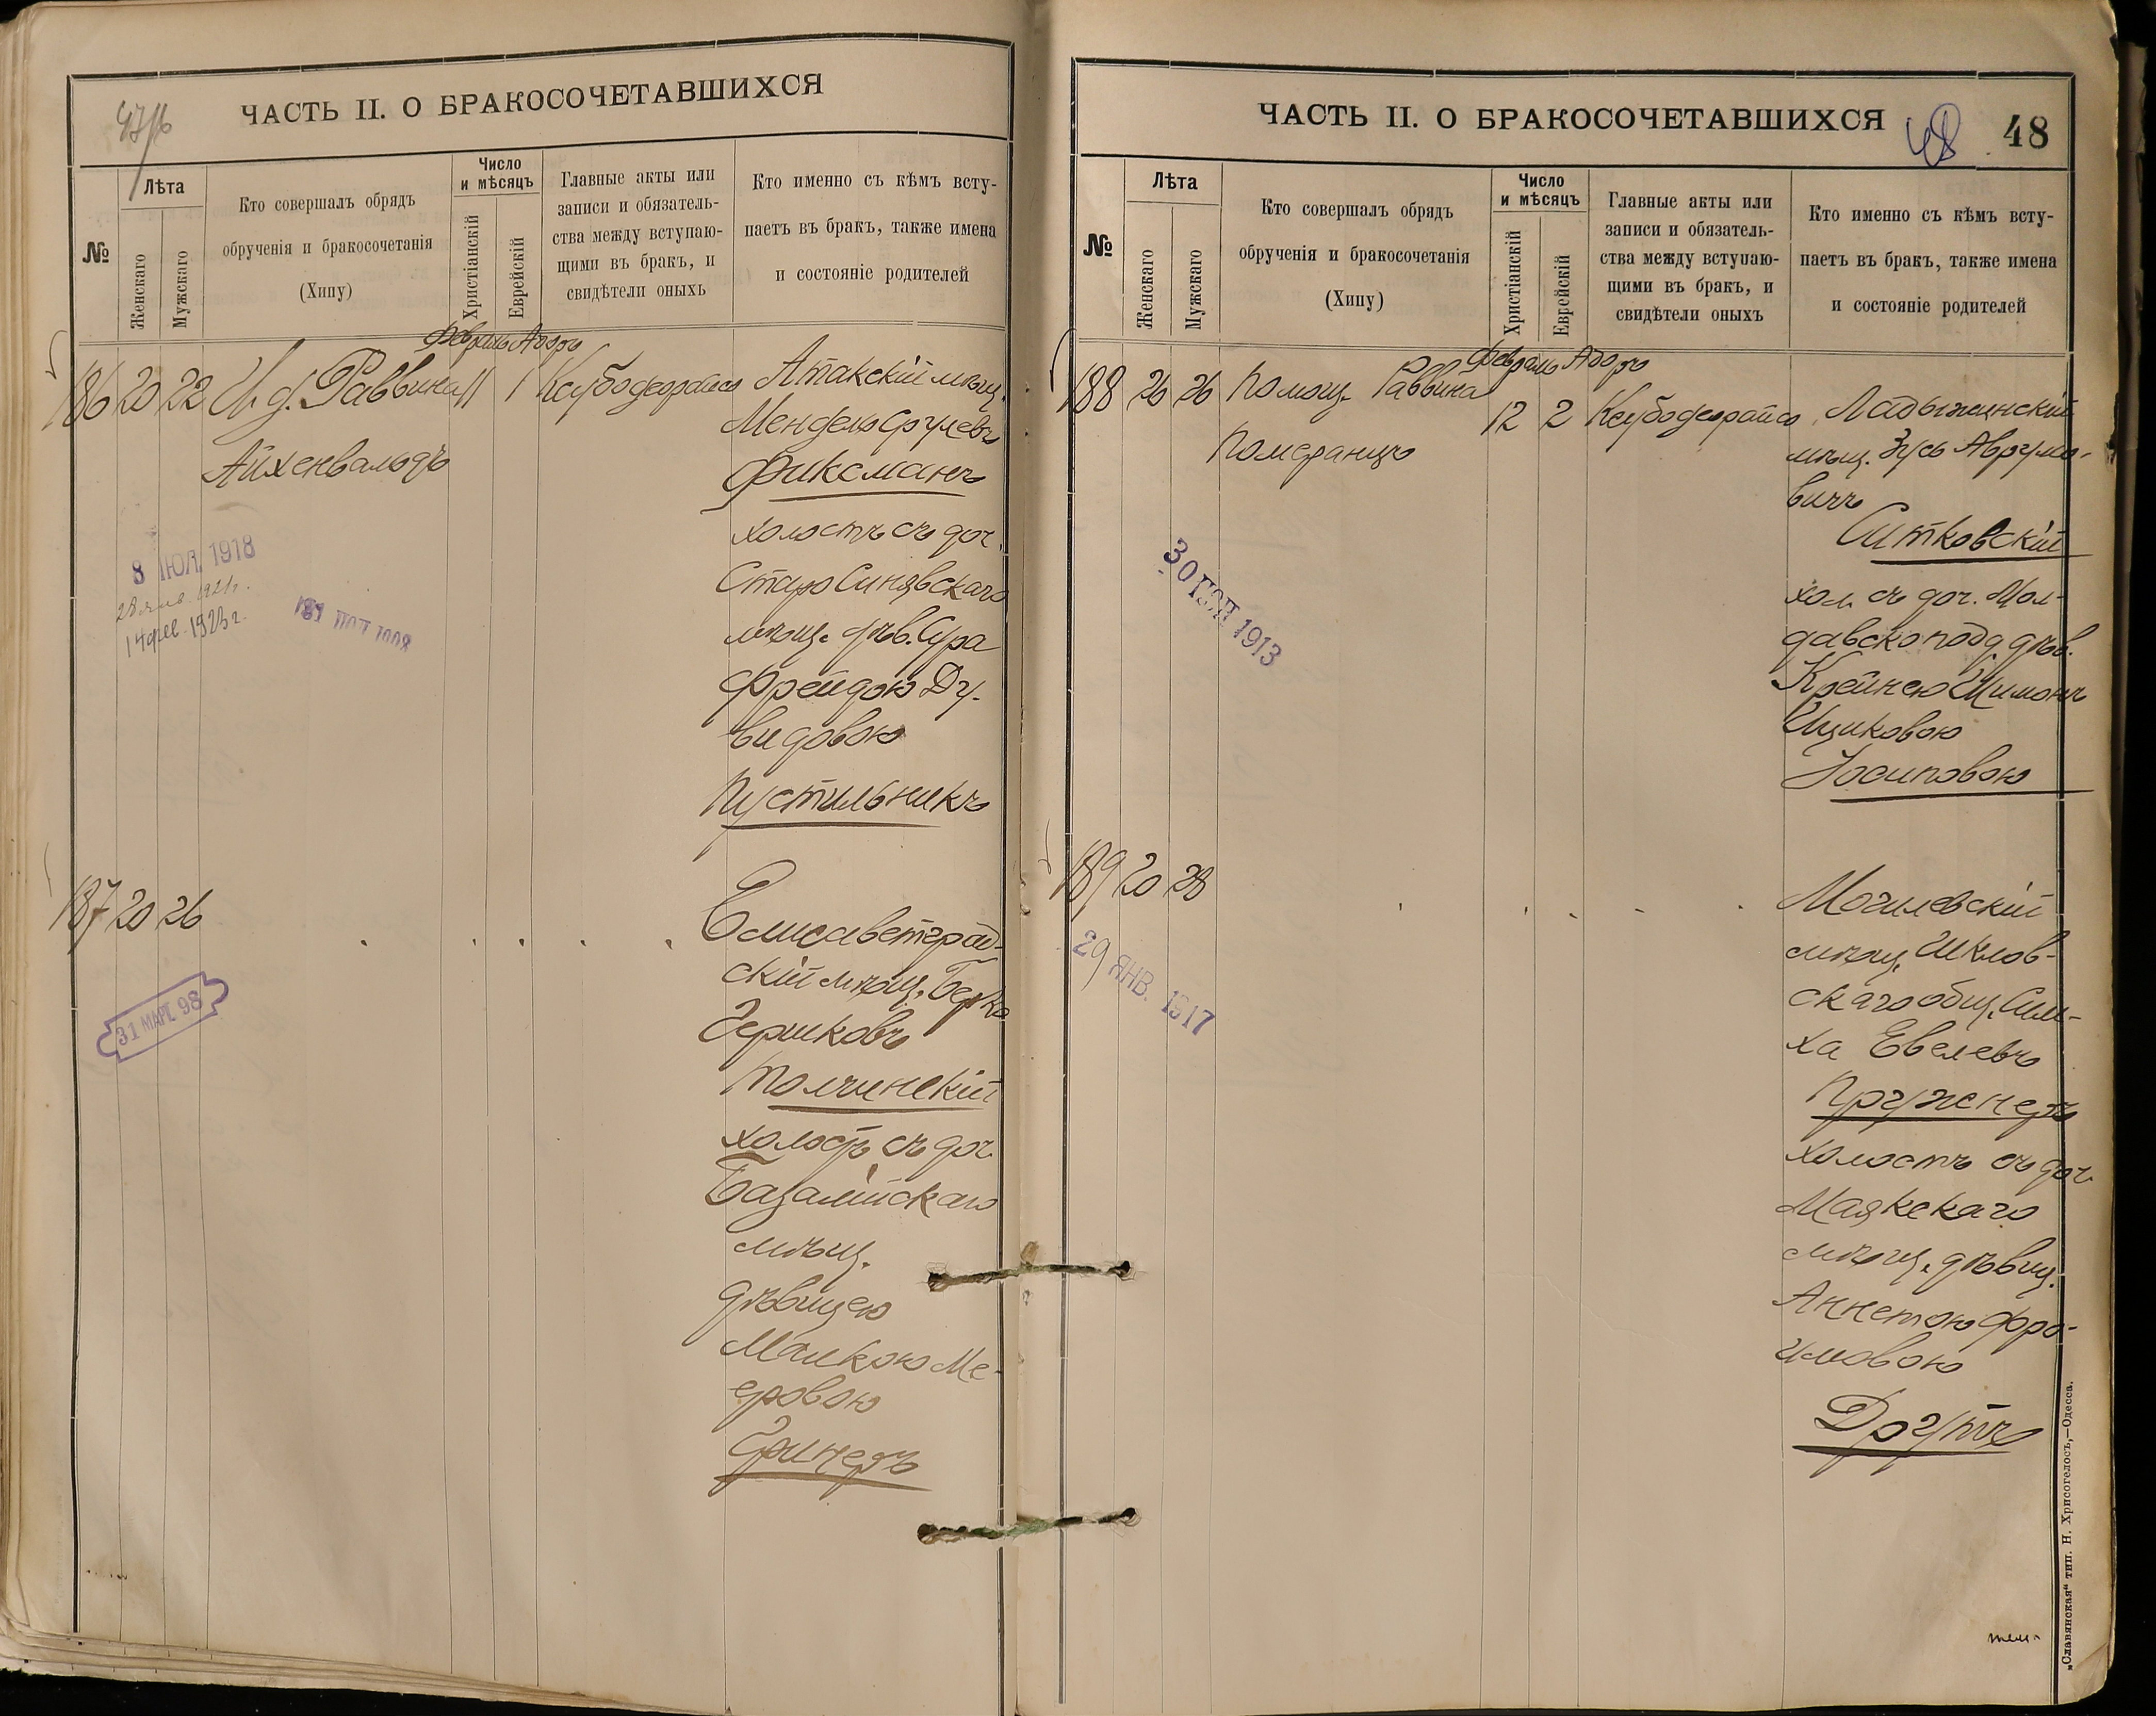 47/б
ЧАСТЬ II. О БРАКОСОЧЕТАВШИХСЯ
№
Лѣта
Женскаго
Мужскаго
Кто совершалъ обрядъ
обрученія и бракосочетанія
(Хипу)
Число
и мѣсяцъ
Христіанскій
Еврейскій
Главные акты или
записи и обязатель-
ства между вступаю-
щими въ бракъ, и
свидѣтели оныхъ
Кто именно съ кѣмъ всту-
паетъ въ бракъ, также имена
и состояніе родителей
Февраль Адоръ
186 20 22 И. д. Раввина 11 1 Ксубодеорайсо
Айхенвальдъ
Атакскій мѣщ.
Мендель Срулевъ
Фиксманъ
холостъ съ доч.
Старо Синявскаго
мѣщ. дѣв. Сура
Фрейдою Ду-
видовою
Пустильникъ
8 ІЮЛ 1918
28 янв. 1921г.
14 фев. 1923г.
187 20 26
31 МАРТ. 98
Елисаветград-
скій мѣщ. Берко
Гершковъ
Толчинскій
холостъ съ доч.
Базалійскаго
мѣщ.
дѣвицею
Малкою Ме-
еровою
Гринеръ
ЧАСТЬ II. О БРАКОСОЧЕТАВШИХСЯ
48
48
№
Лѣта
Женскаго
Мужскаго
Кто совершалъ обрядъ
обрученія и бракосочетанія
(Хипу)
Число
и мѣсяцъ
Христіанскій
Еврейскій
Главные акты или
записи и обязатель-
ства между вступаю-
щими въ бракъ, и
свидѣтели оныхъ
Кто именно съ кѣмъ всту-
паетъ въ бракъ, также имена
и состояніе родителей
Февраль Адоръ
188 26 26 Помощ. Раввина 12 2 Ксубодеорайсо
Померанцъ
Ладыжинскій
мѣщ. Зусь Аврумо-
вичъ
Ситковскій
хол. съ доч. Мол-
давско подд. дѣв.
Крейнею Шимонъ
Ицковою
Іосиповою
30 ІЮН 1913
189 20 28
29 ЯНВ. 1917
Могилевскій
мѣщ. Шклов-
скаго общ. Сим-
ха Евелевъ
Пруженеръ
холостъ съ доч.
Маякскаго
мѣщ. дѣвиц.
Аннетою Фро-
имовою
Другъ
„Славянская“ тип. Н. Хрисогелосъ,—Одесса.